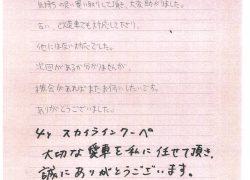 気持ちの良い買い取りして頂き、大変助かりました。
古い、ど愛車でも対応して下さり、
他には無い対応でした。
次回があるか分かりませんが、
機会があればまたお伺いしたいです。
ありがとうございました。
4y スカイラインクーペ
大切な愛車を私に任せて頂き、
誠にありがとうございます。